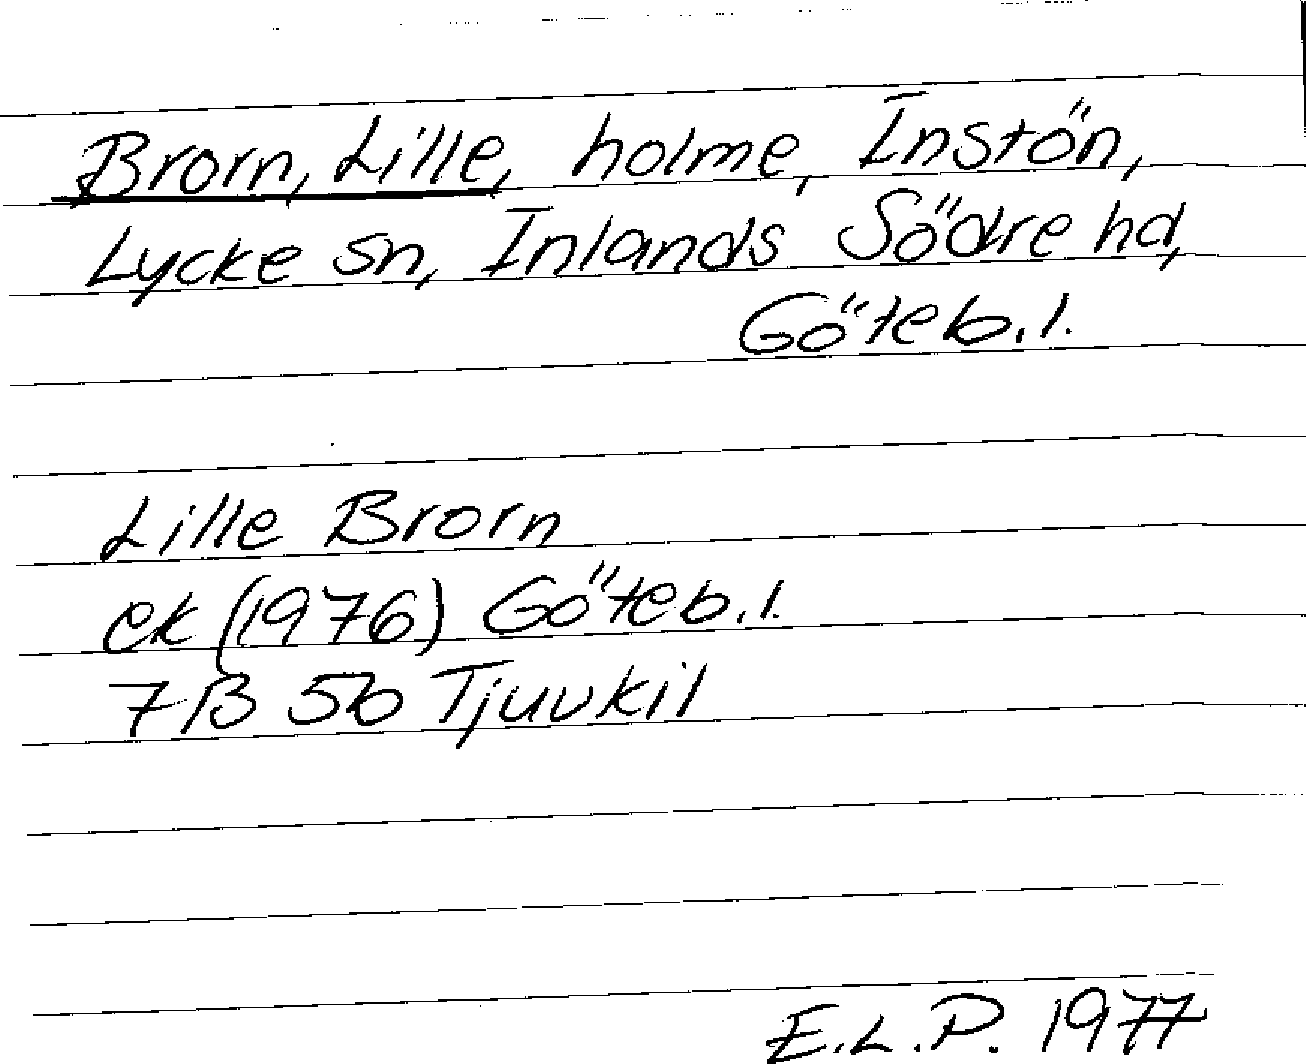 Brorn, Lille, holme, Instön,
Lycke sn, Inlands Södre hd,
Göteb.l.
Lille Brorn
ek (1976) Göteb.l.
7B 5b Tjuvkil
E.L.P. 1977